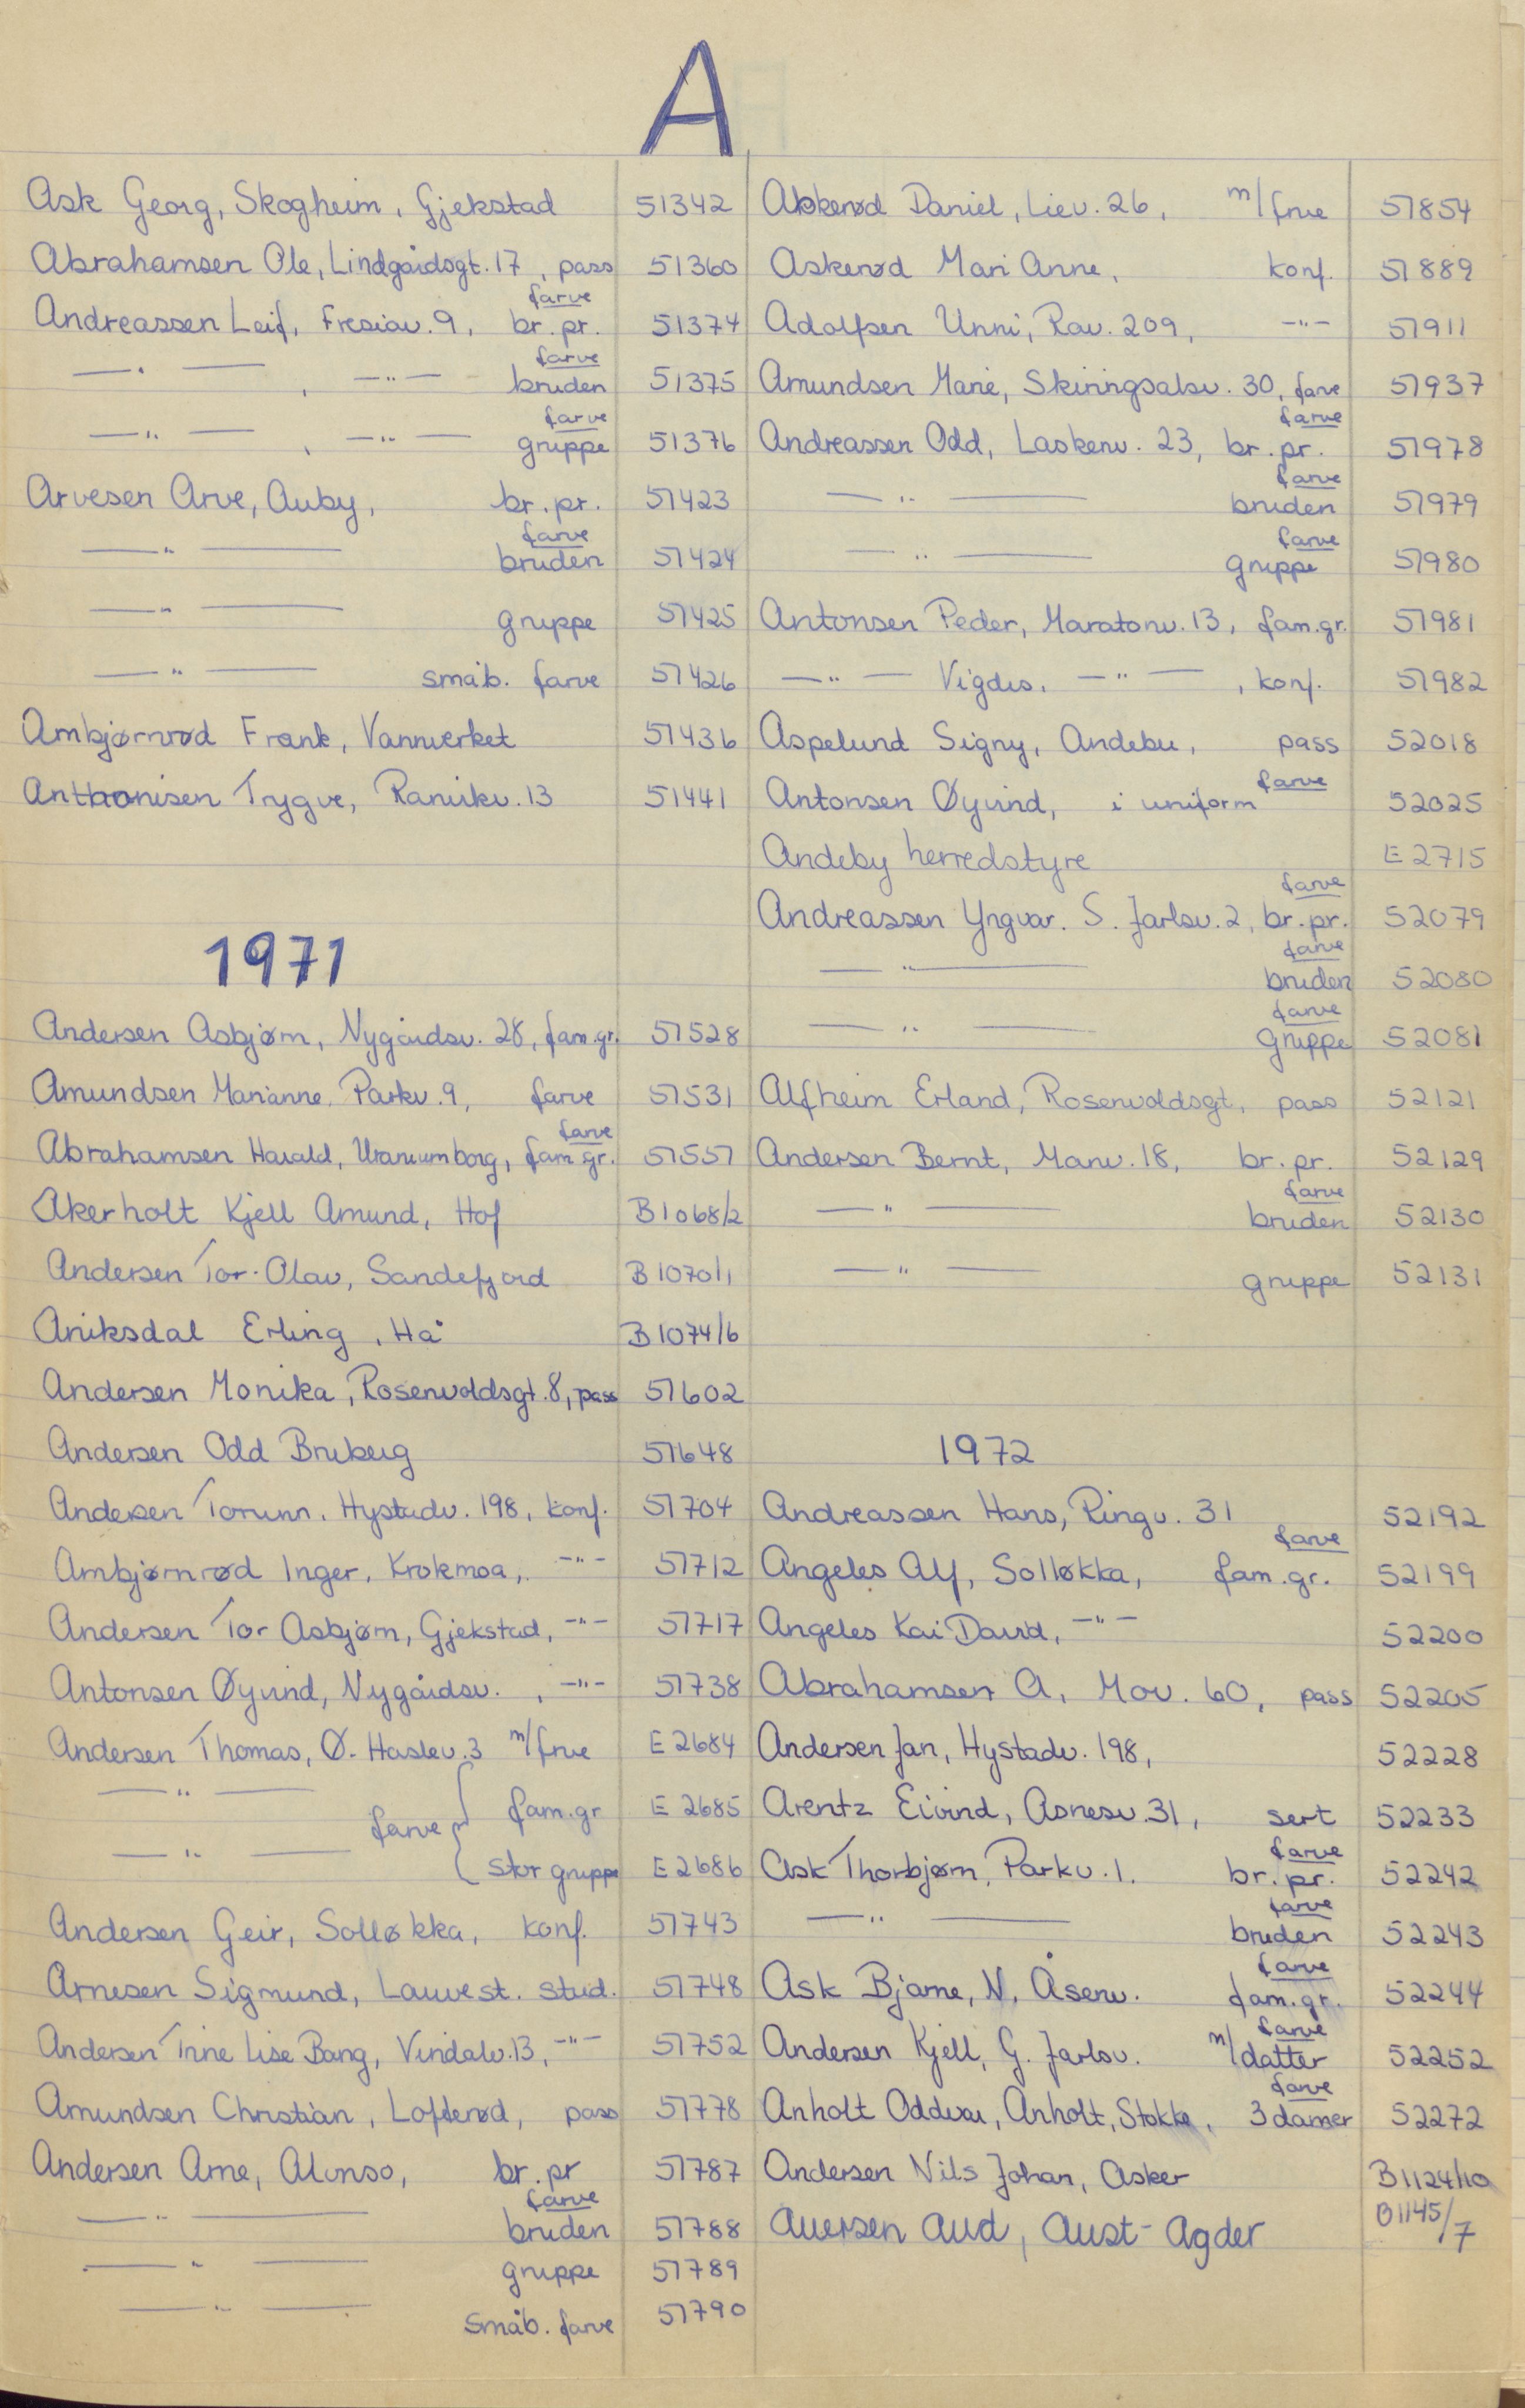 A
Ask Georg, Skogheim, Gjekstad 51342
Abrahamsen Ole, Lindgårdsgt. 17, pass 51360
Andreassen Leif, Fresiav. 9, farve br. pr. 51374
—"— , —"— farve bruden 51375
—"— , —"— farve gruppe 51376
Arvesen Arve, Auby, br. pr. 51423
—"— farve bruden 51424
—"— gruppe 51425
—"— småb. farve 51426
Ambjørnrød Frank, Vannverket 51436
Anthonisen Trygve, Ranvikv. 13 51441
1971
Andersen Asbjørn, Nygårdsv. 28, fam.gr. 51528
Amundsen Marianne, Parkv. 9, farve 51531
Abrahamsen Harald, Uranienborg, farve fam.gr. 51557
Akerholt Kjell Amund, Hof B1068/2
Andersen Tor-Olav, Sandefjord B1070/1
Aniksdal Erling, Hå B1074/6
Andersen Monika, Rosenvoldsgt. 8, pass 51602
Andersen Odd Bruberg 51648
Andersen Torunn, Hystadv. 198, konf. 51704
Ambjørnrød Inger, Krokmoa, -"- 51712
Andersen Tor Asbjørn, Gjekstad, -"- 51717
Antonsen Øyvind, Nygårdsv. , -"- 51738
Andersen Thomas, Ø. Haslev. 3 m/frue E2684
—"— farve { fam.gr E2685
—"— stor gruppe E2686
Andersen Geir, Solløkka, konf. 51743
Arnesen Sigmund, Lauvest. stud. 51748
Andersen Trine Lise Bang, Vindalv. 13, -"- 51752
Amundsen Christian, Lofterød, pass 51778
Andersen Arne, Alonso, br. pr 51787
—"— farve bruden 51788
—"— gruppe 51789
—"— småb. farve 51790
Askerød Daniel, Liev. 26, m/frue 51854
Askerød Mari Anne, konf. 51889
Adolfsen Unni, Rav. 209, -"- 51911
Amundsen Marie, Skiringsalsv. 30, farve 51937
Andreassen Odd, Laskenv. 23, farve br. pr. 51978
—"— farve bruden 51979
—"— farve gruppe 51980
Antonsen Peder, Maratonv. 13, fam.gr. 51981
—"— Vigdis, —"— , konf. 51982
Aspelund Signy, Andebu, pass 52018
Antonsen Øyvind, i uniform farve 52025
Andeby herredstyre E2715
Andreassen Yngvar. S. Jarlsv. 2, farve br. pr. 52079
—"— farve bruden 52080
—"— farve gruppe 52081
Alfheim Erland, Rosenvoldsgt, pass 52121
Andersen Bernt, Manv. 18, br. pr. 52129
—"— farve bruden 52130
—"— gruppe 52131
1972
Andreassen Hans, Ringv. 31 52192
Angeles Alf, Solløkka, farve fam.gr. 52199
Angeles Kai David, -"- 52200
Abrahamsen A, Mov. 60, pass 52205
Andersen Jan, Hystadv. 198, 52228
Arentz Eivind, Asnesv. 31, sert 52233
Ask Thorbjørn, Parkv. 1. farve br. pr. 52242
—"— farve bruden 52243
Ask Bjarne, N. Åsenv. farve fam.gr. 52244
Andersen Kjell, G. Jarlsv. farve m/datter 52252
Anholt Oddvar, Anholt, Stokke, farve 3 damer 52272
Andersen Nils Johan, Asker B1124/10
Auersen Aud, Aust-Agder B1145/7